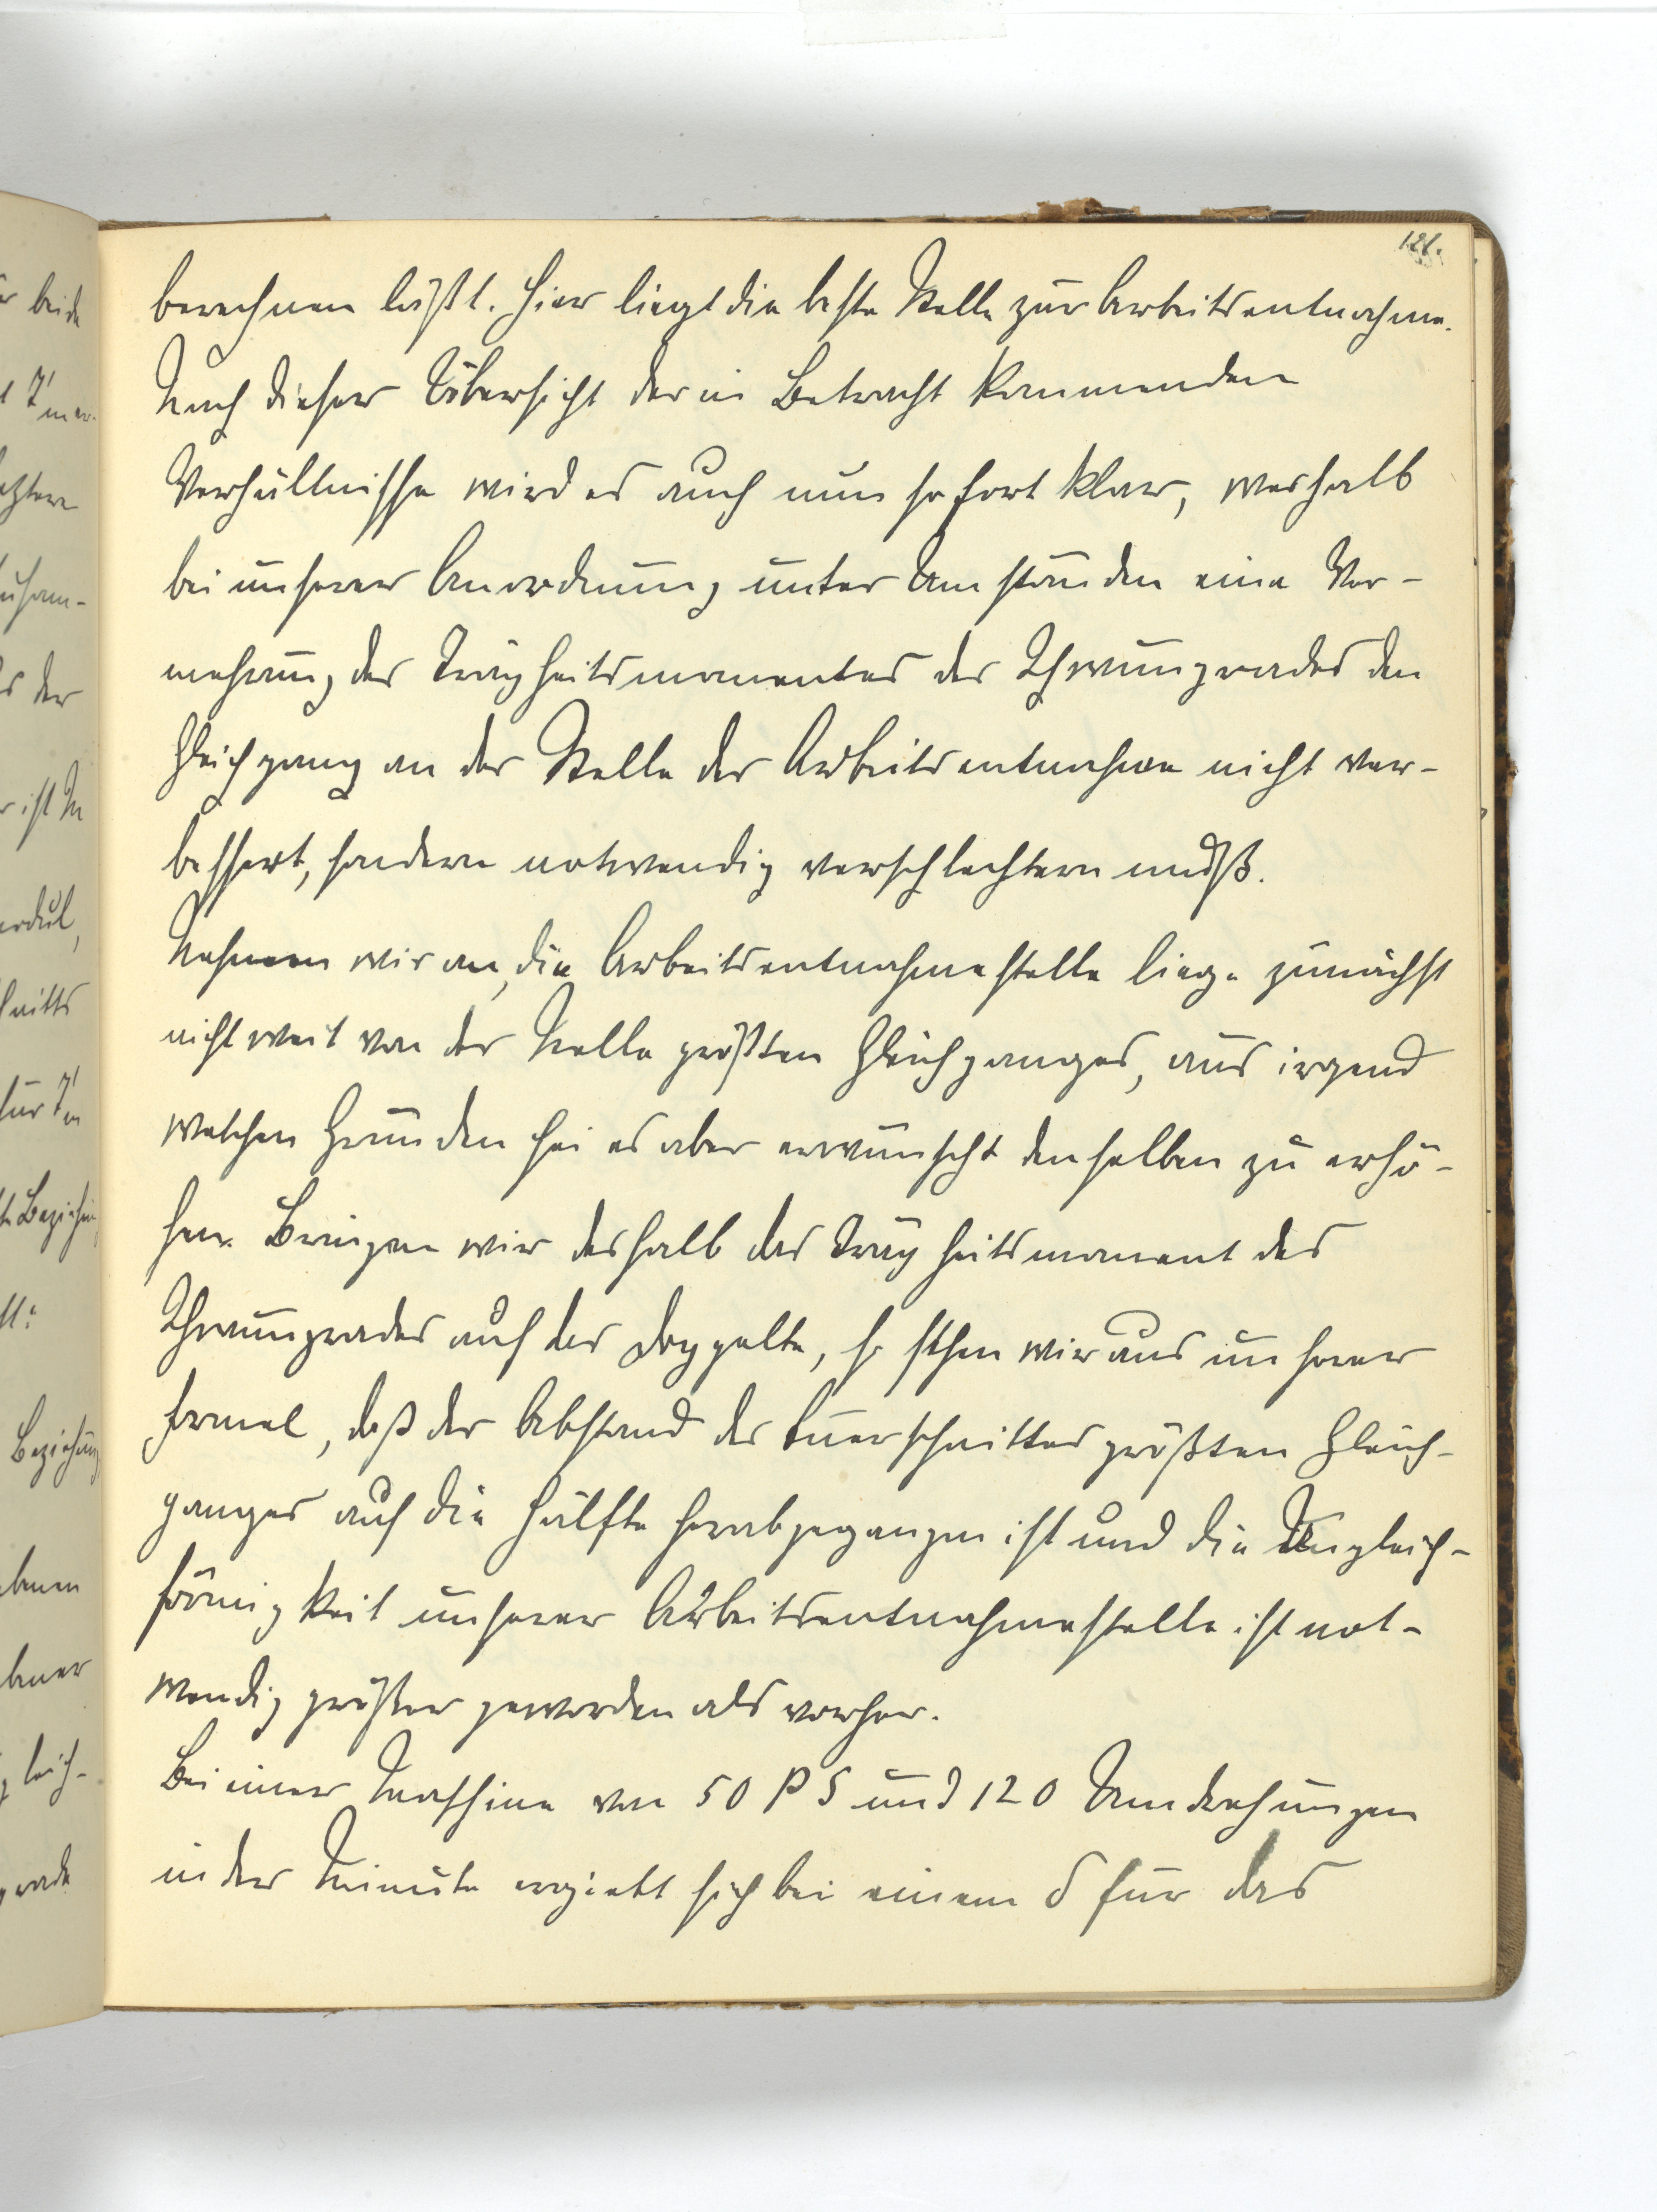 121.
berechnen läßt. Hier liegt die beste Stelle zur Arbeitsentnahme.
Nach dieser Übersicht der in Betracht kommenden
Verhältnisse wird es auch nun sofort klar, weshalb
bei unserer Anordnung unter Umständen eine Ver-
mehrung des Trägheitsmomentes des Schwungrades den
Gleichgang an der Stelle der Arbeitsentnahme nicht ver-
bessert, sondern notwendig verschlechtern muß.
Nehmen wir an, die Arbeitsentnahmestelle liege zunächst
nicht weit von der Stelle größten Gleichganges, aus irgend
welchen Gründen sei es aber erwünscht denselben zu erhö-
hen. Bringen wir deshalb das Trägheitsmoment des
Schwungrades auf das doppelte, so sehen wir aus unserer
Formel, daß der Abstand des Querschnittes größten Gleich-
ganges auf die Hälfte herabgegangen ist und die Ungleich-
förmigkeit unserer Arbeitsentnahmestelle ist not-
wendig größer geworden als vorher.
Bei einer Maschine von 50 PS und 120 Umdrehungen
in der Minute ergiebt sich bei einem δ für das
beide
der
ist
für
Beziehung